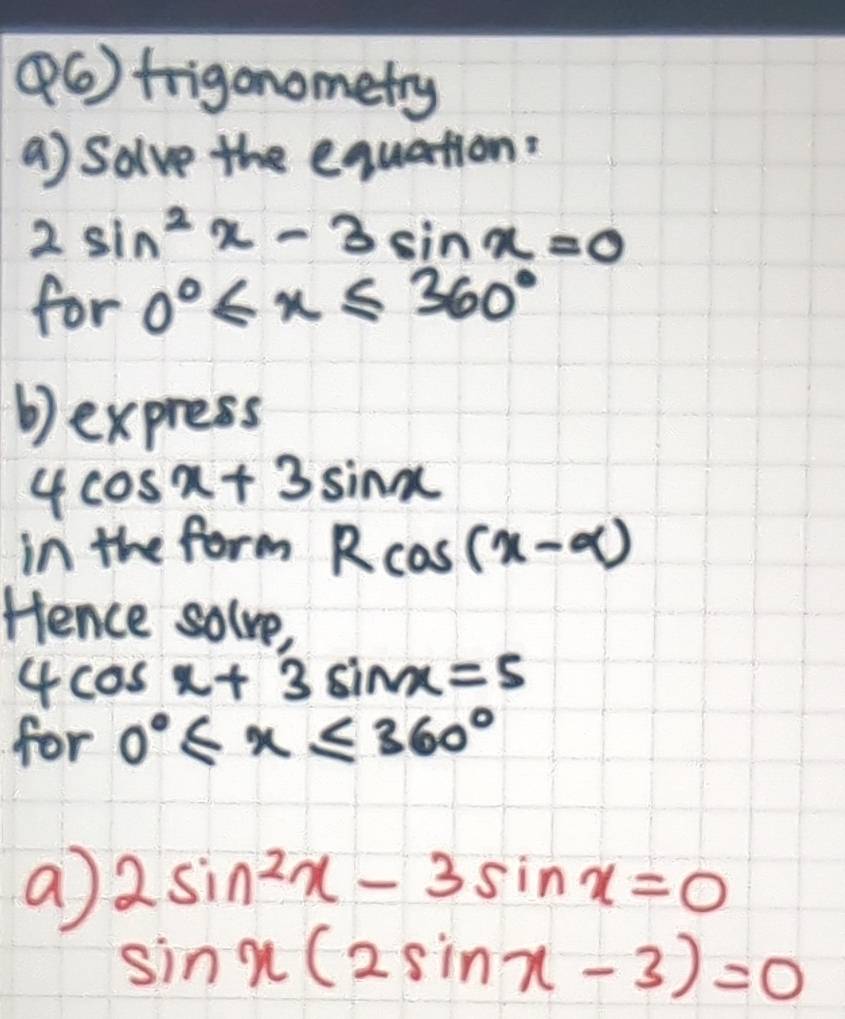 Q6) trigonometry
a) Solve the equation:
2 sin² x - 3 sin x = 0
for 0° ≤ x ≤ 360°
b) express
4 cos x + 3 sin x
in the form R cos (x - α)
Hence solve,
4 cos x + 3 sin x = 5
for 0° ≤ x ≤ 360°
a) 2 sin² x - 3 sin x = 0
sin x (2 sin x - 3) = 0